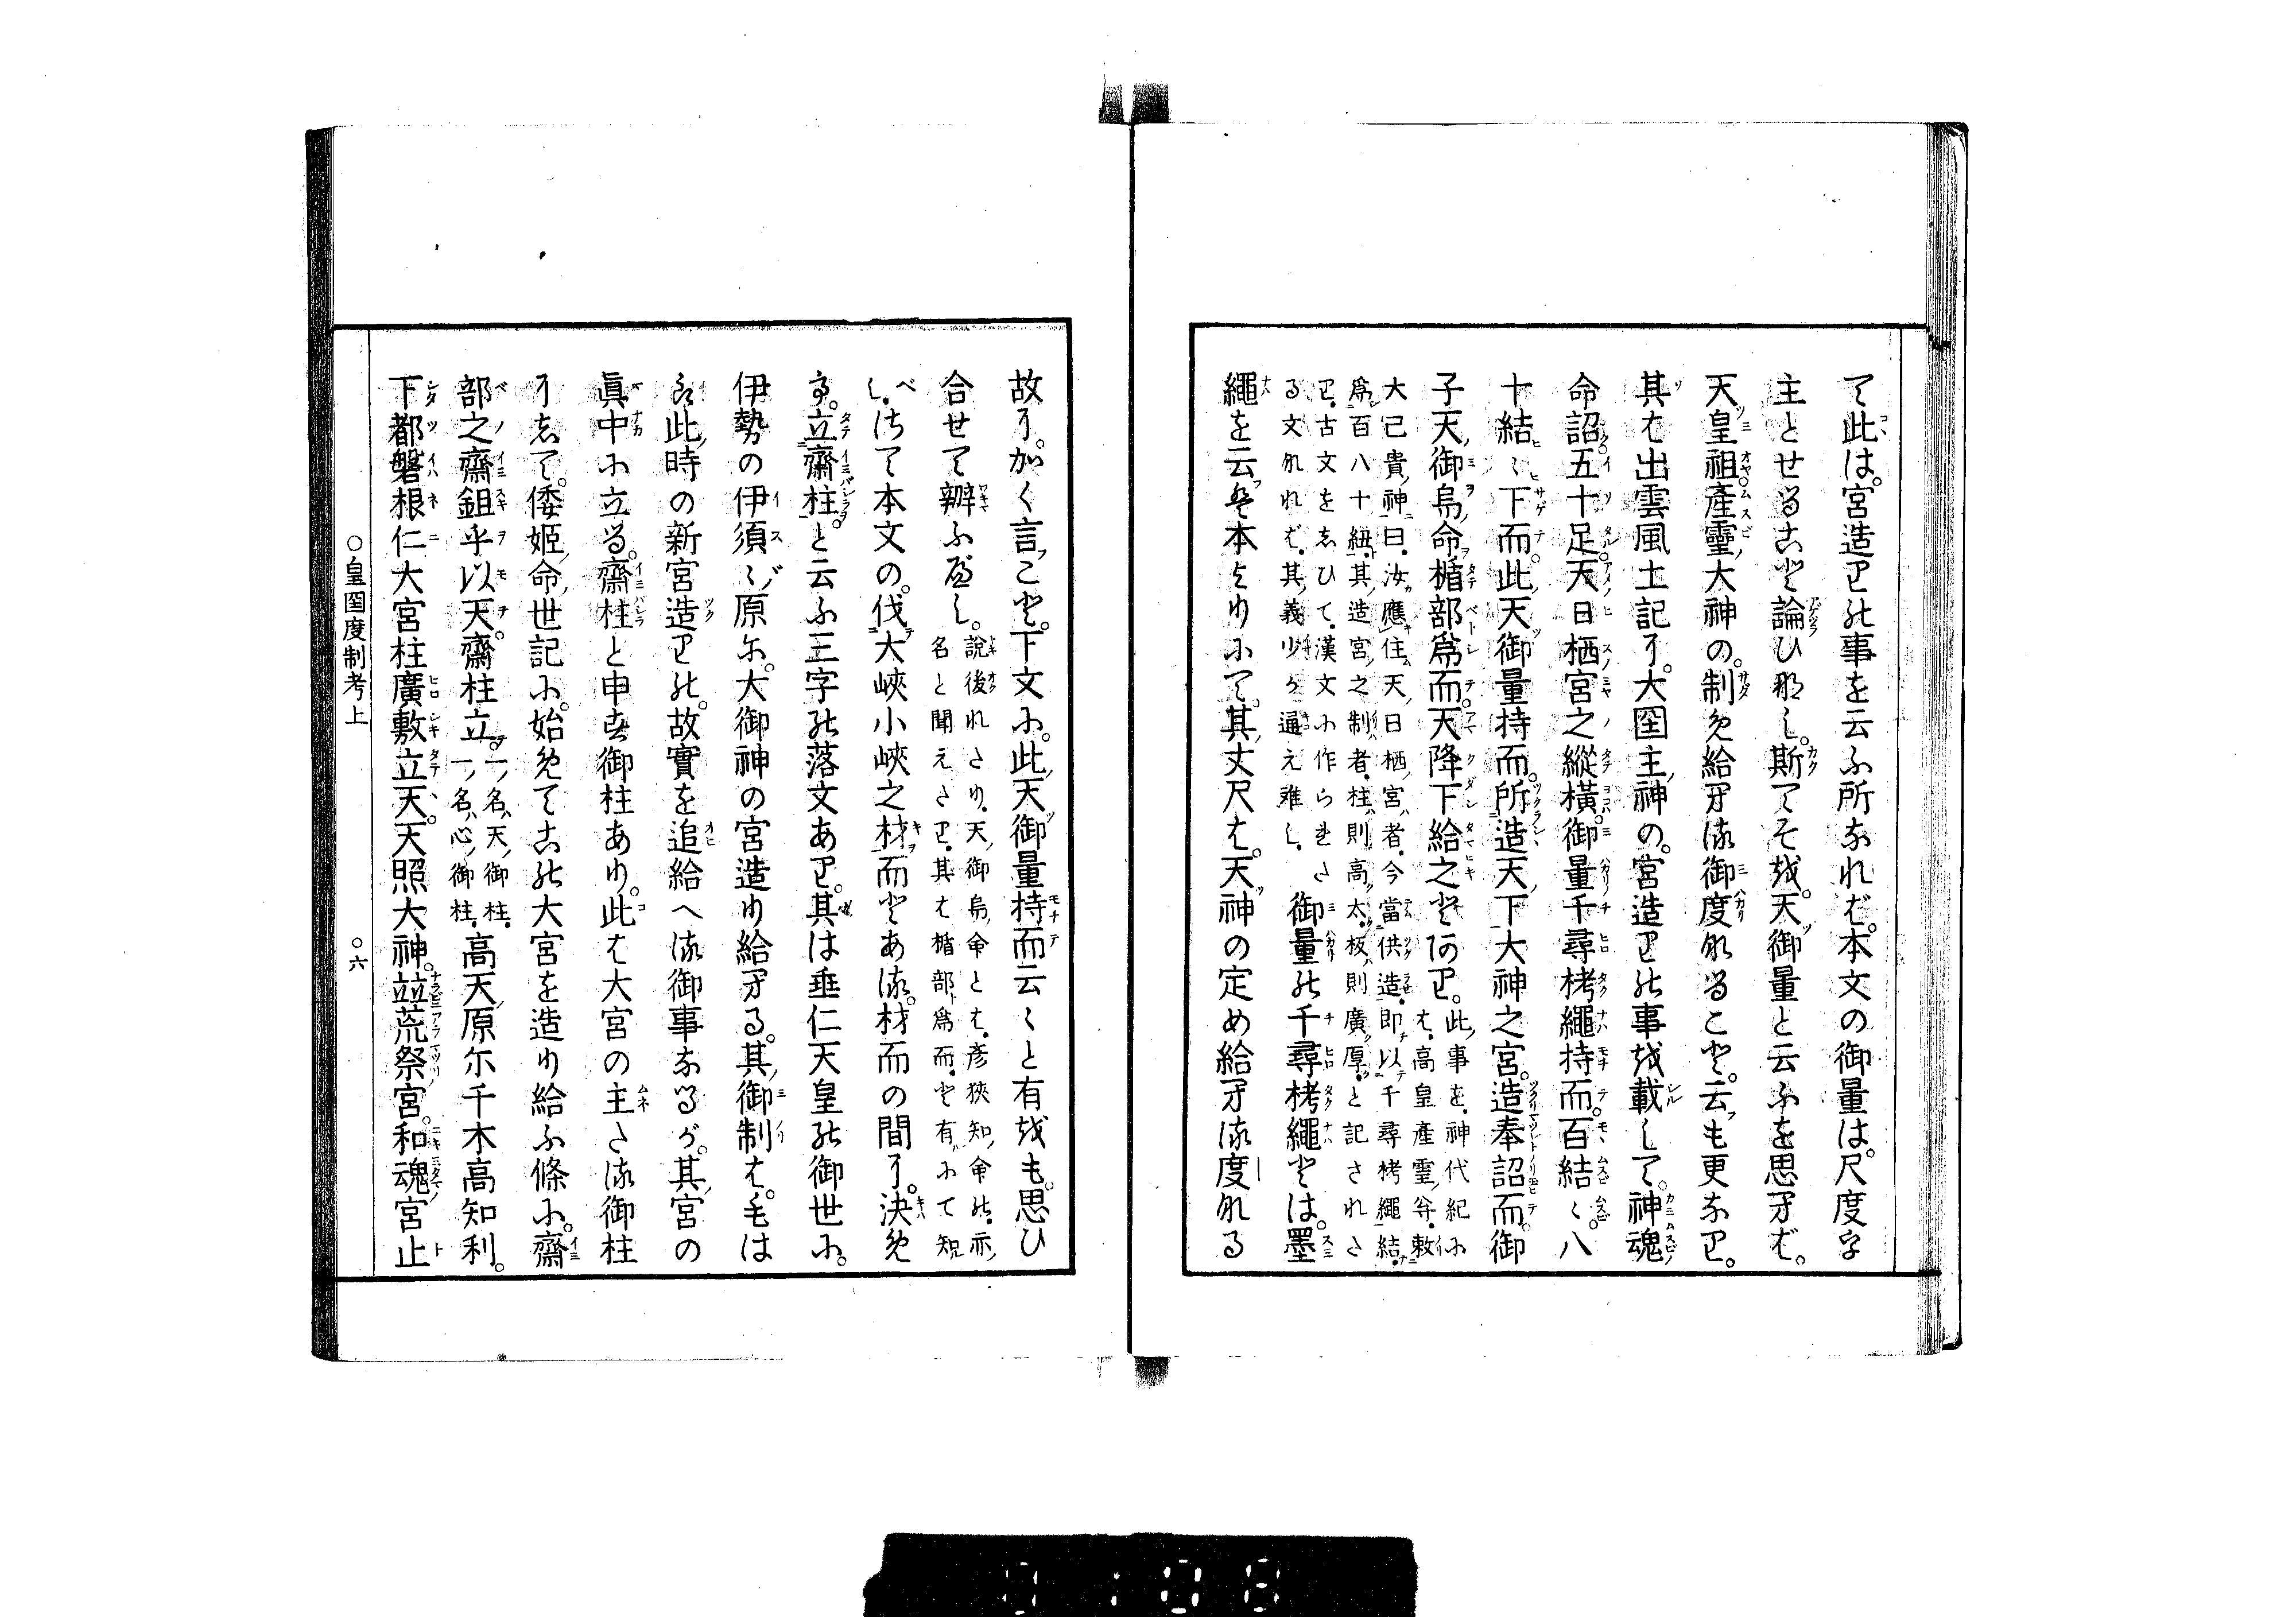 て此は。宮造りの事を云ふ所なれば。本文の御量は。尺度を
主とせること論ひ那し。斯てそを。天御量と云ふを思へば。
天皇祖產靈大神の。制め給へる御度なること。云も更なり。
其は出雲風土記に。大国主神の。宮造りの事を載して。神魂
命詔五十足天日栖宮之縱橫。御量千尋栲繩持而。百結〻。八
十結〻下而。此天御量持而。所造天下大神之宮。造奉詔而。御
子天御鳥命楯部為而。天降下給之とあり。此事を。神代紀に
は。高皇產靈尊。敕
大己貴神曰。汝應住天日栖宮者。今當供造。即以千尋栲繩結。
為百八十紐。其造宮之制者。柱則高太。板則廣厚。と記された
り。古文をしひて。漢文に作られた
る文なれば。其義少か通え難し。御量の千尋栲繩とは。墨
繩を云。是本よりにて。其丈尺は。天神の定め給へる度なる
故に。かく言こと。下文に。此天御量持而云〻と有をも。思ひ
合せて辨ふべし。說後れたり。天御鳥命とは。彥狹知命の。亦
名と聞えたり。其は楯部為而。と有にて知
べし。さて本文の。伐大峽小峽之材而とある。材而の間に。決め
て。立齋柱。と云ふ三字の落文あり。其は垂仁天皇の御世に。
伊勢の伊須〻原に。大御神の宮造り給へる。其御制は。もは
ら此時の新宮造りの。故實を追給へる御事なるが。其宮の
眞中に立る。齋柱と申す御柱あり。此は大宮の主たる御柱
にして。倭姬命世記に。始めてこの大宮を造り給ふ條に。齋
部之齋鉏乎以天。齋柱立。一名天御柱。
一名心御柱。高天原尓千木高知利。
下都磐根仁大宮柱廣敷立天。天照大神。並荒祭宮。和魂宮止
○皇国度制考上 ○六